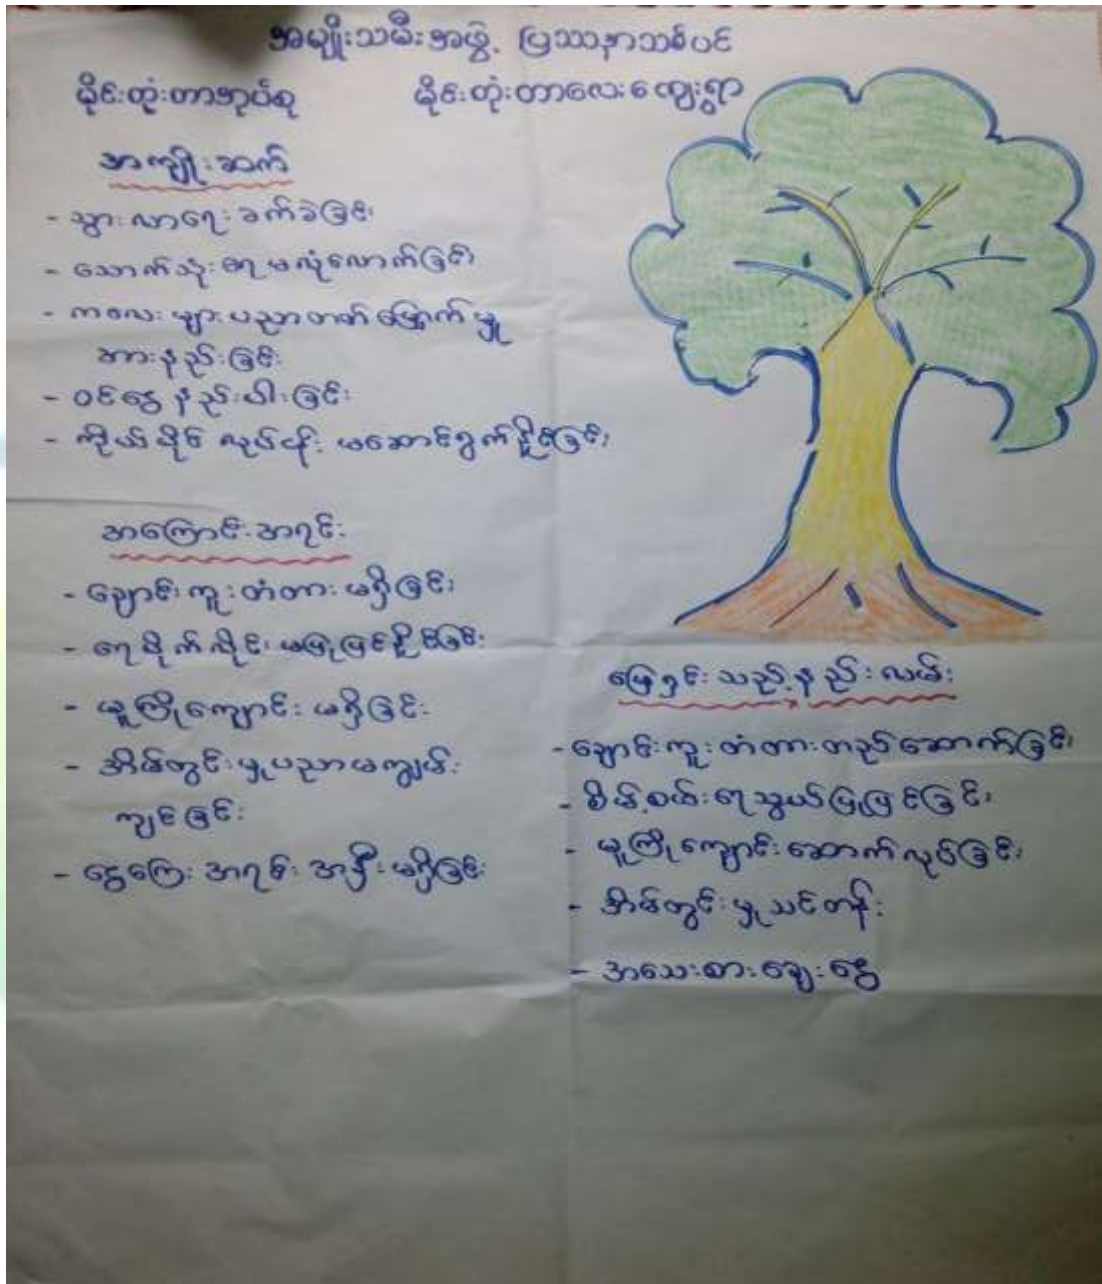 အမျိုးသမီးအဖွဲ့ ပြဿနာသစ်ပင်
မိုင်းတုံးတာအုပ်စု မိုင်းတုံးတာလေးကျေးရွာ
အကျိုးဆက်
- သွားလာရေး ခက်ခဲခြင်း
- သောက်သုံးရေ မလုံလောက်ခြင်း
- ကလေးများ ပညာတတ်မြှောက်မှု
အားနည်းခြင်း
- ဝင်ငွေနည်းပါးခြင်း
- ကိုယ်ပိုင် လုပ်ငန်း မဆောင်ရွက်နိုင်ခြင်း
အကြောင်းအရင်း
- ချောင်းကူးတံတား မရှိခြင်း
- ရေပိုက်လိုင်း မပြုပြင်နိုင်ခြင်း
- မူကြိုကျောင်း မရှိခြင်း
- အိမ်တွင်းမှုပညာမကျွမ်း
ကျင်ခြင်း
- ငွေကြေး အရင်း အနှီး မရှိခြင်း
ဖြေရှင်းသည့်နည်းလမ်း
- ချောင်းကူးတံတားတည်ဆောက်ခြင်း
- စိမ့်စမ်းရေသွယ်ပြုပြင်ခြင်း
- မူကြိုကျောင်းဆောက်လုပ်ခြင်း
- အိမ်တွင်းမှုသင်တန်း
- အသေးစားချေးငွေ